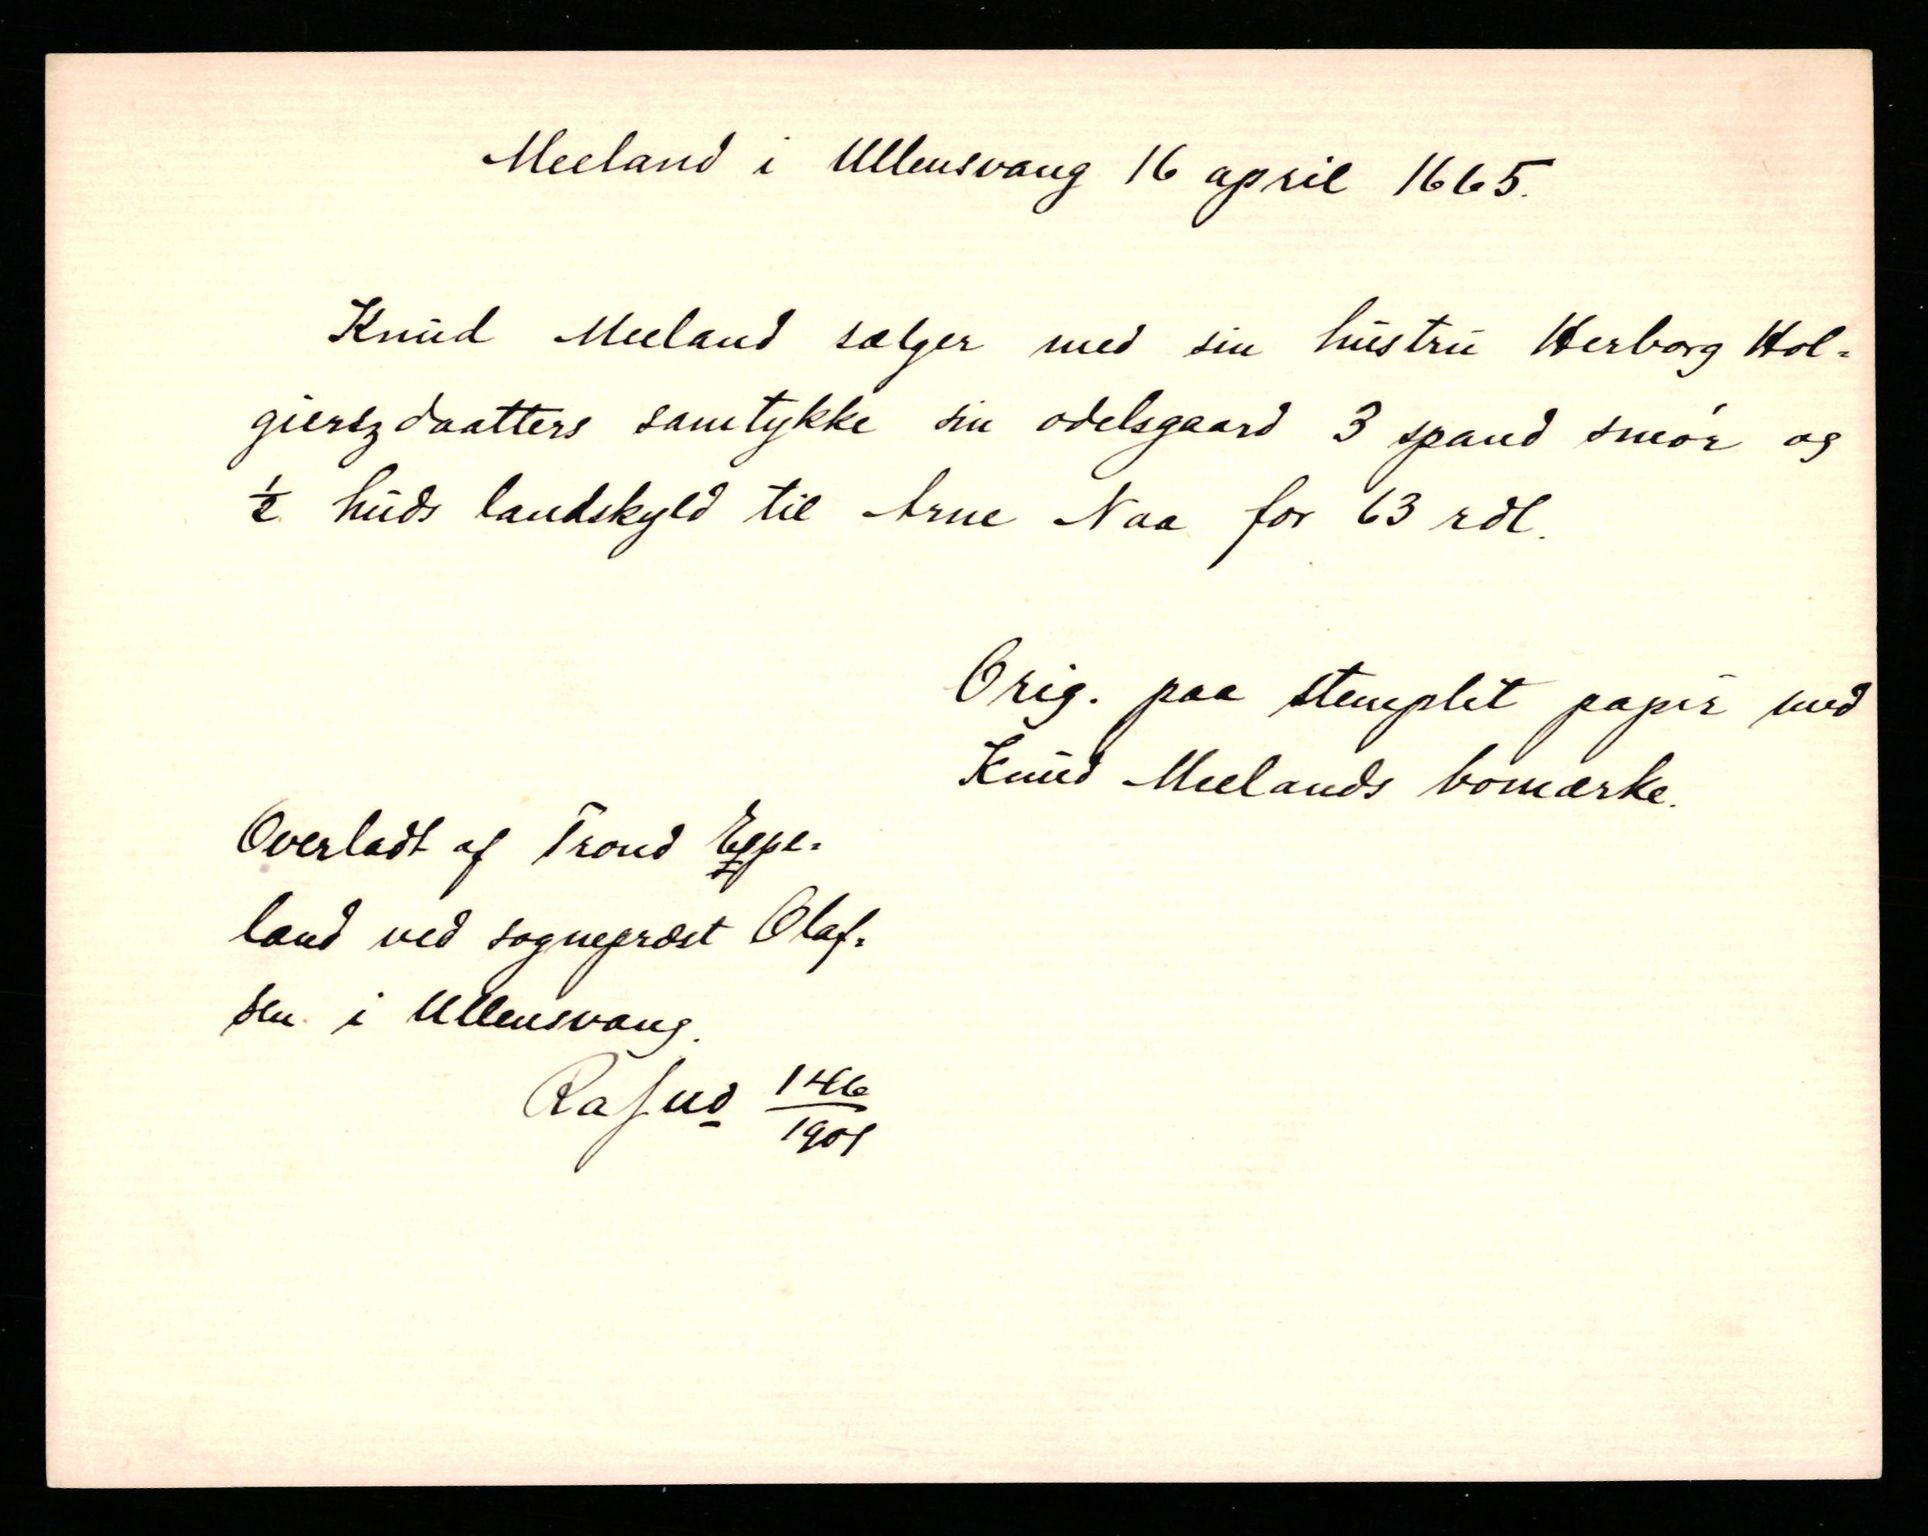 Meeland i Ullensvang 16 april 1665.
Knud Meeland sælger med sin hustru Herborg Hol-
gierszdaatters samtykke sin odelsgaard 3 spand smør og
½ huds landskyld til Arne Naa for 63 rdl.
Orig. paa stemplet papir med
Knud Meelands bomærke.
Overladt af Trond Eppe-
land ved sogneprest Olaf-
sen i Ullensvang.
146
1901